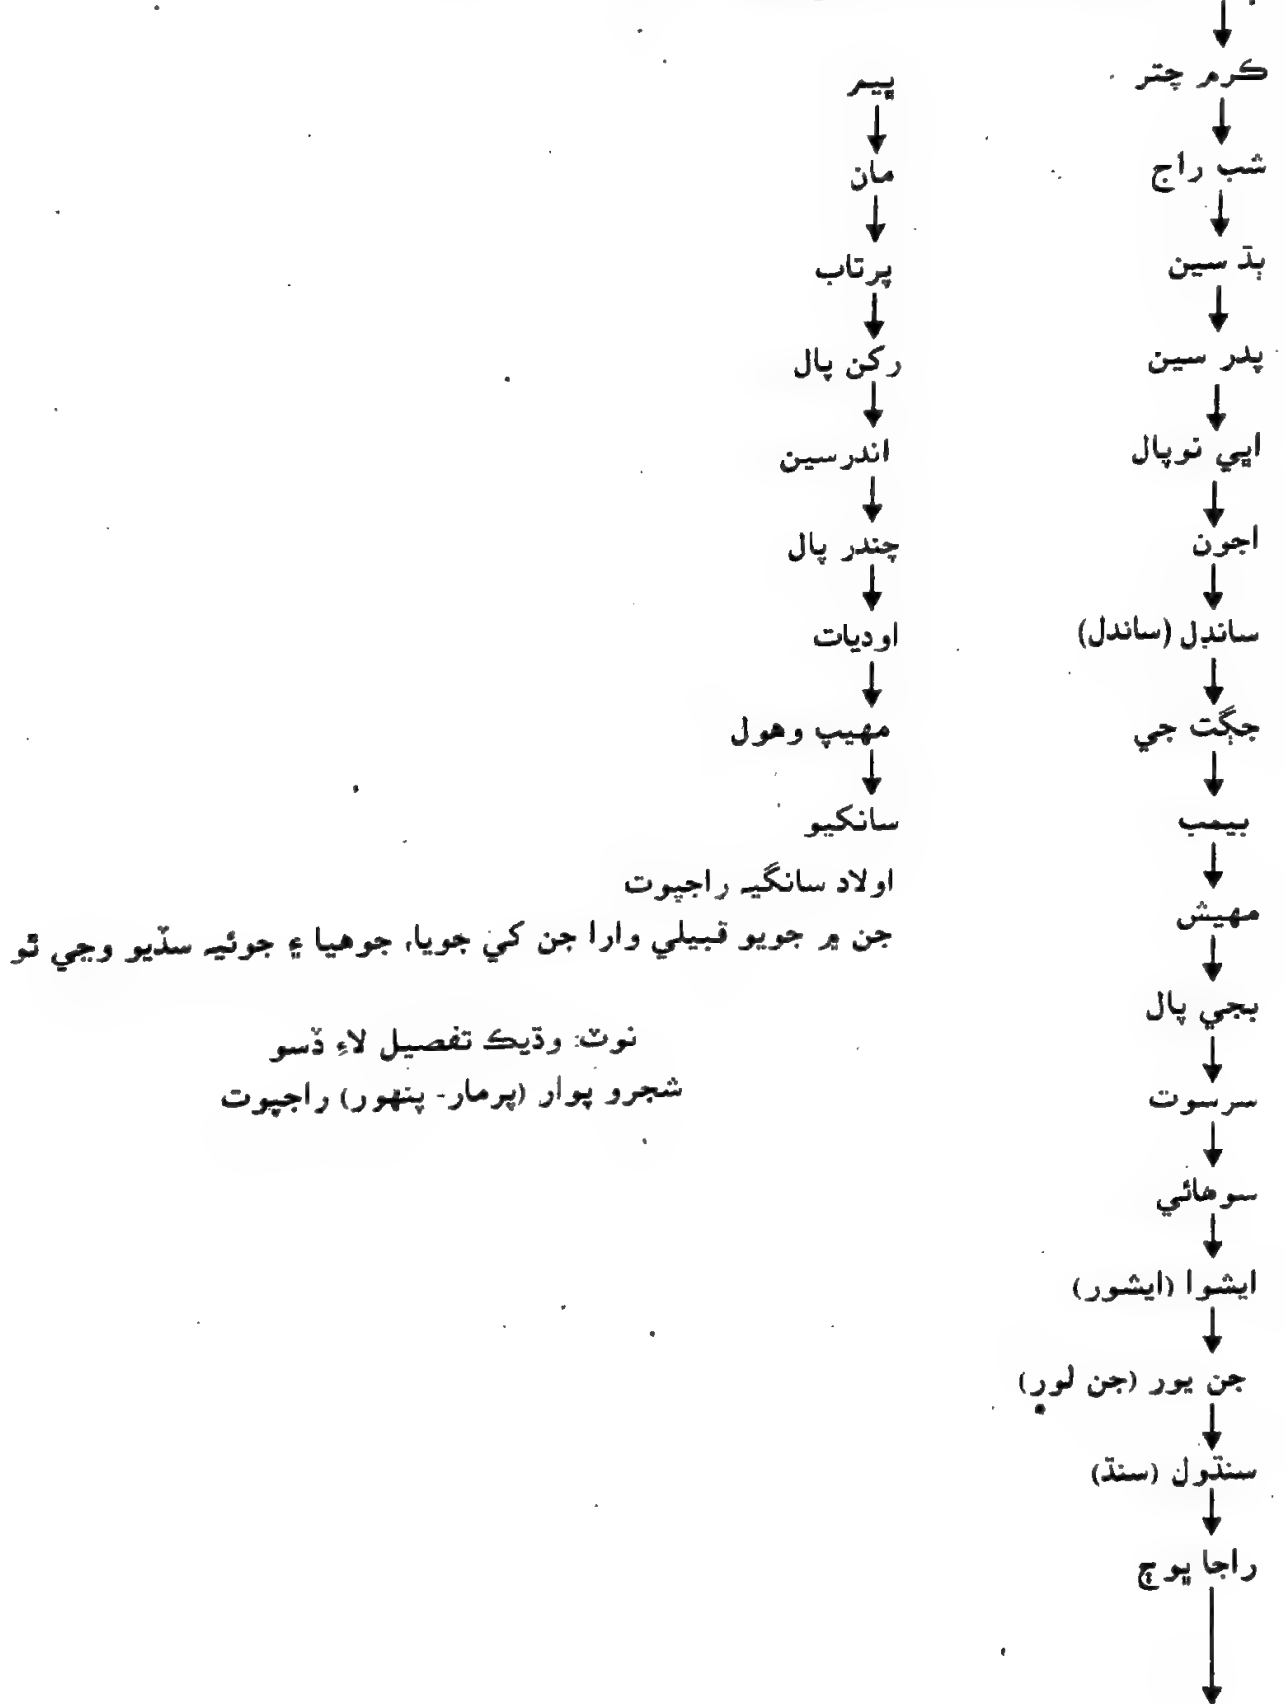 ڪرم چتر
شب راج
ٻڌ سين
پدر سين
اڀي نوپال
اجون
سانڊل (ساندل)
جڳت جي
بيمب
مهيش
بجي پال
سرسوت
سوهائي
ايشوا (ايشور)
جن يور (جن لور)
سنڌول (سنڌ)
راجا ڀوڄ
ڀيم
مان
پرتاب
رکن پال
اندرسين
چندر پال
اوديات
مهيپ وهول
سانکيو
اولاد سانگيہ راجپوت
جن ۾ جويو قبيلي وارا جن کي جويا، جوهيا ۽ جوئيہ سڏيو وڃي ٿو
نوٽ: وڌيڪ تفصيل لاءِ ڏسو
شجرو پوار (پرمار- پنهور) راجپوت